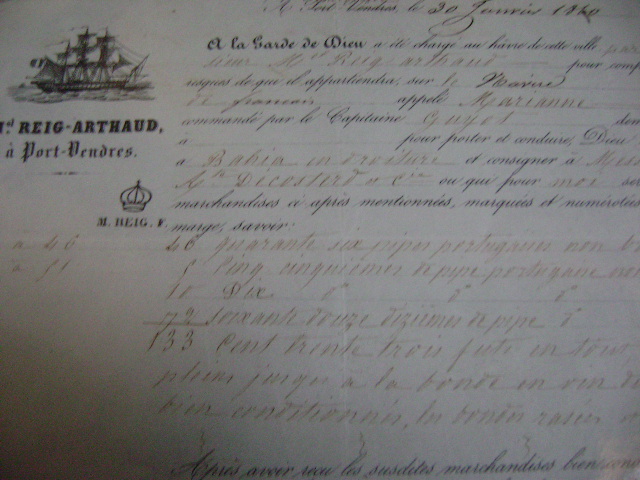 A Port-Vendres, le 20 Janvier 1840
A la Garde de Dieu a été chargé au hâvre de cette ville par
sieur Md Reig arthaud pour comp
resques de qui il appartiendra, sur le Navire
de francais appelé Marianne
Md REIG-ARTHAUD,
à Port-Vendres.
commandé par le Capitaine Guyot
à pour porter et conduire, Dieu
a Bahia en droiture et consigner à Mess
Décosterd & Cie ou que pour moi ser
marchandises ci après mentionnées, marquées et numérotées
M. REIG. F.
marge, savoir:
a 46 46 quarante six pipes portugaises non
a 51 5 Cinq cinquiemes de pipe portugaise non
10 Dix d° d° d°
72 soixante douze dizièmes de pipe d°
133 Cent trente trois futs en tout
pleins jusqu'a la bonde en vin de
bien conditionnés, les bondes rasées
Après avoir reçu les susdites marchandises bien condi